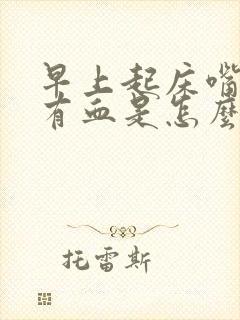 早上起床嘴
有血是怎麼
托雷斯